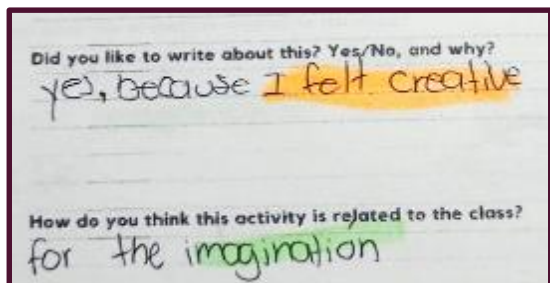 Did you like to write about this? Yes/No, and why?
yes, because I felt creative
How do you think this activity is related to the class?
for the imagination